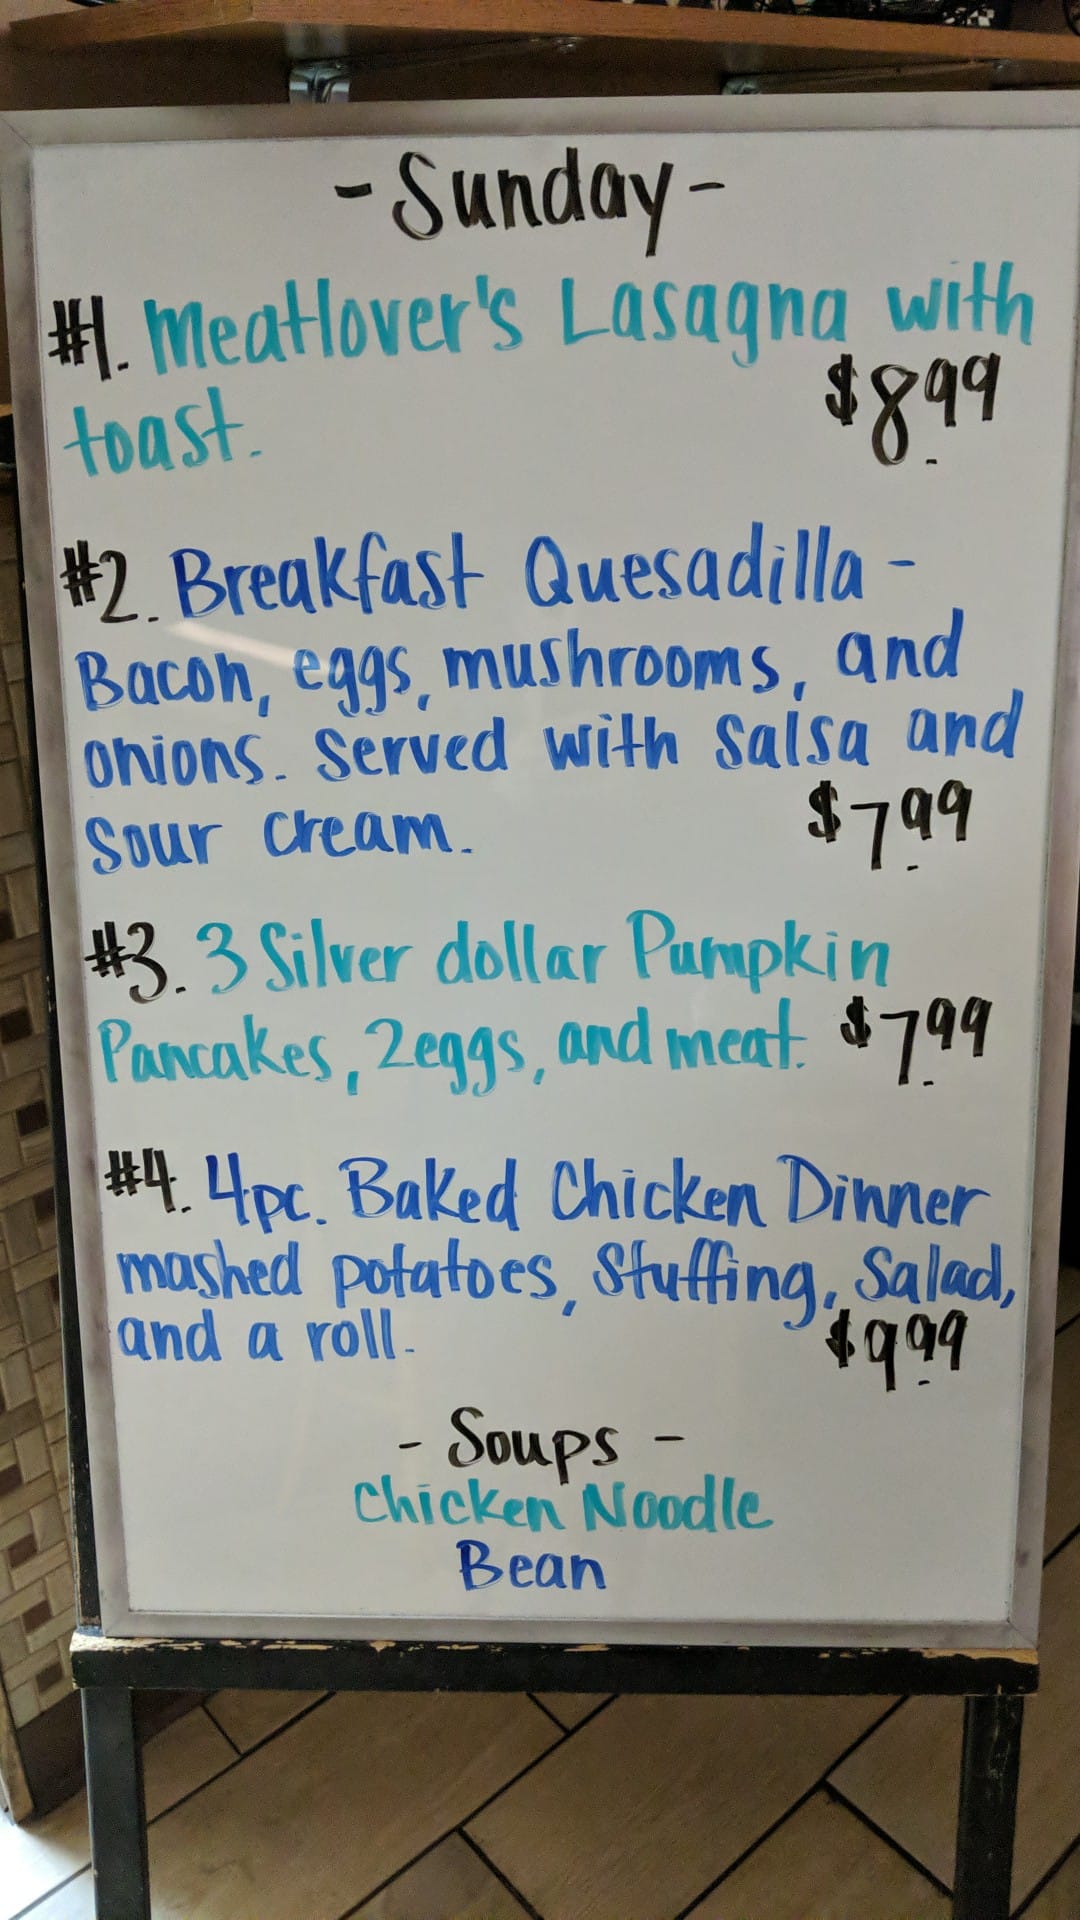 - Sunday -
#1. Meatlover's Lasagna with
toast. $8.99
#2. Breakfast Quesadilla -
Bacon, eggs, mushrooms, and
onions. Served with Salsa and
Sour Cream. $7.99
#3. 3 Silver dollar Pumpkin
Pancakes, 2eggs, and meat. $7.99
#4. 4pc. Baked Chicken Dinner
mashed potatoes, Stuffing, Salad,
and a roll. $9.99
- Soups -
Chicken Noodle
Bean